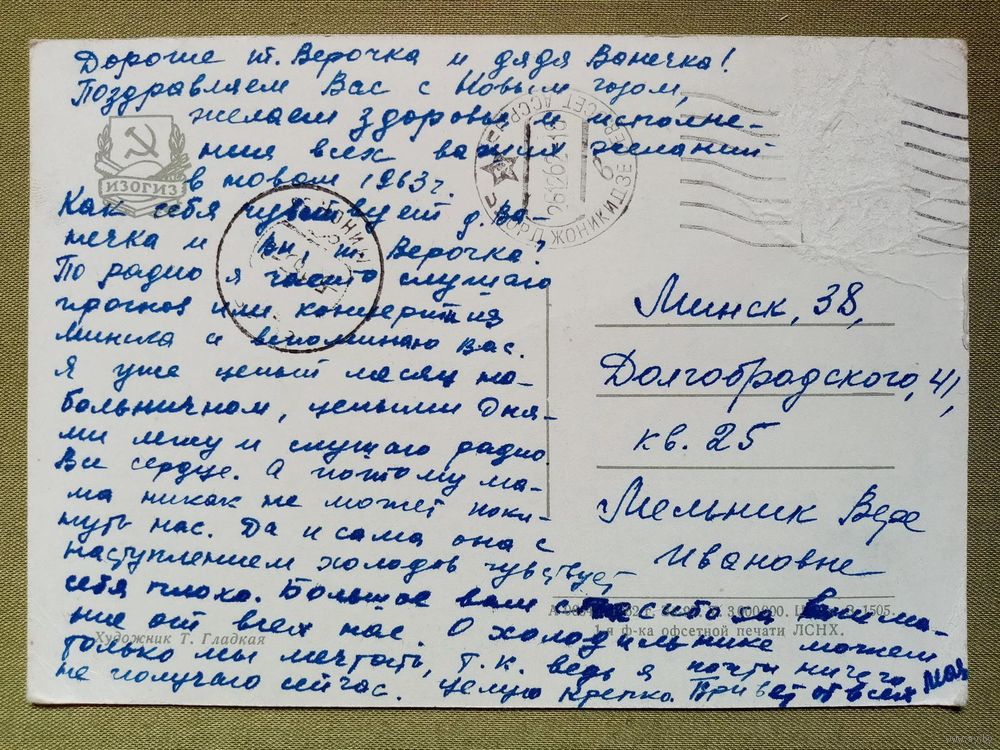 Дорогие т. Верочка и дядя Ванечка!
Поздравляем Вас с Новым годом,
желаем здоровья и исполне-
ния всех ваших желаний
в новом 1963 г.
Как себя чувствует д. Ва-
нечка и Вы, т. Верочка?
По радио я часто слушаю
прогноз или концерты из
Минска и вспоминаю Вас.
Я уже целый месяц на
больничном, целыми дня-
ми лежу и слушаю радио
Все сердце. А поэтому ма-
ма никак не может поки-
нуть нас. Да и сама она с
наступлением холодов чувствует
себя плохо. Большое вам спасибо за внима-
ние от всех нас. О холодильнике можем
только мы мечтать, т.к. ведь я почти ничего
не получаю сейчас. Целую крепко. Привет от всех
Мая
ИЗОГИЗ
ОРДЖОНИКИДЗЕ
СЕВ ОСЕТ АССР
261262
Минск, 38,
Долгобродского, 41,
кв. 25
Мельник Вере
Ивановне
3 000 000.
1505.
1-я ф-ка офсетной печати ЛСНХ.
Художник Т. Гладкая